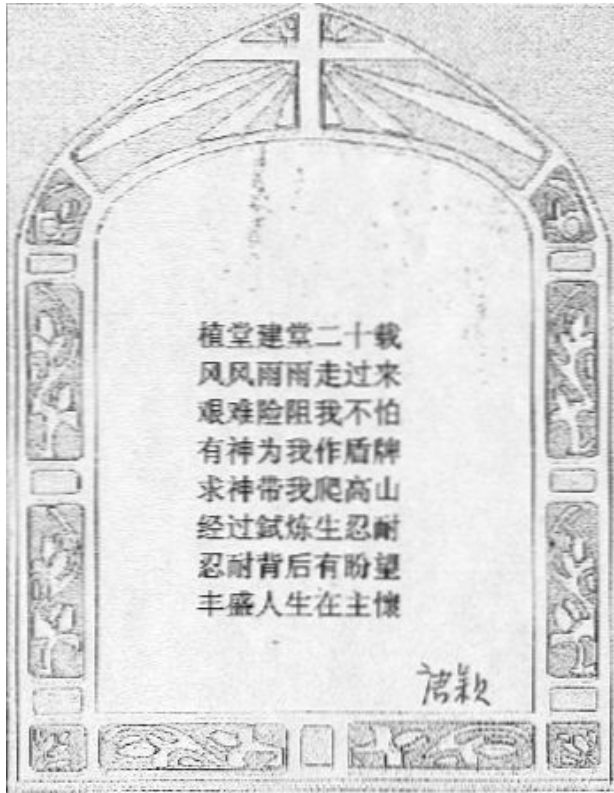 植堂建堂二十载
风风雨雨走过来
艰难险阻我不怕
有神为我作盾牌
求神带我爬高山
经过試炼生忍耐
忍耐背后有盼望
丰盛人生在主懷
唐颖